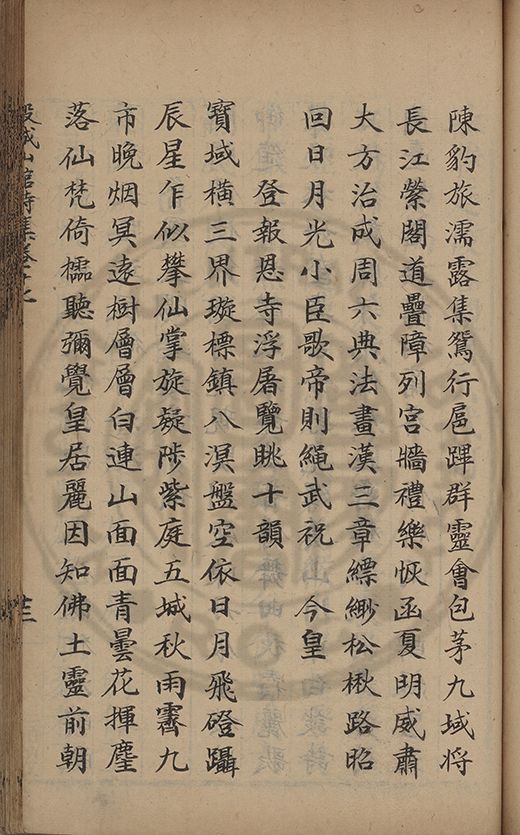 陳豹旅濡露集鴛行扈蹕群靈會包茅九域將
長江縈閣道疊障列宮牆禮樂恢函夏明威肅
大方治成周六典法畫漢三章縹緲松楸路昭
回日月光小臣歌帝則繩武祝　今皇
登報恩寺浮屠覽眺十韻
寶域橫三界璇標鎮八溟盤空依日月飛磴躡
辰星乍似攀仙掌旋疑陟紫庭五城秋雨霽九
市晚烟冥遠樹層層白連山面面青曇花揮麈
落仙梵倚櫺聽彌覺皇居麗因知佛土靈前朝